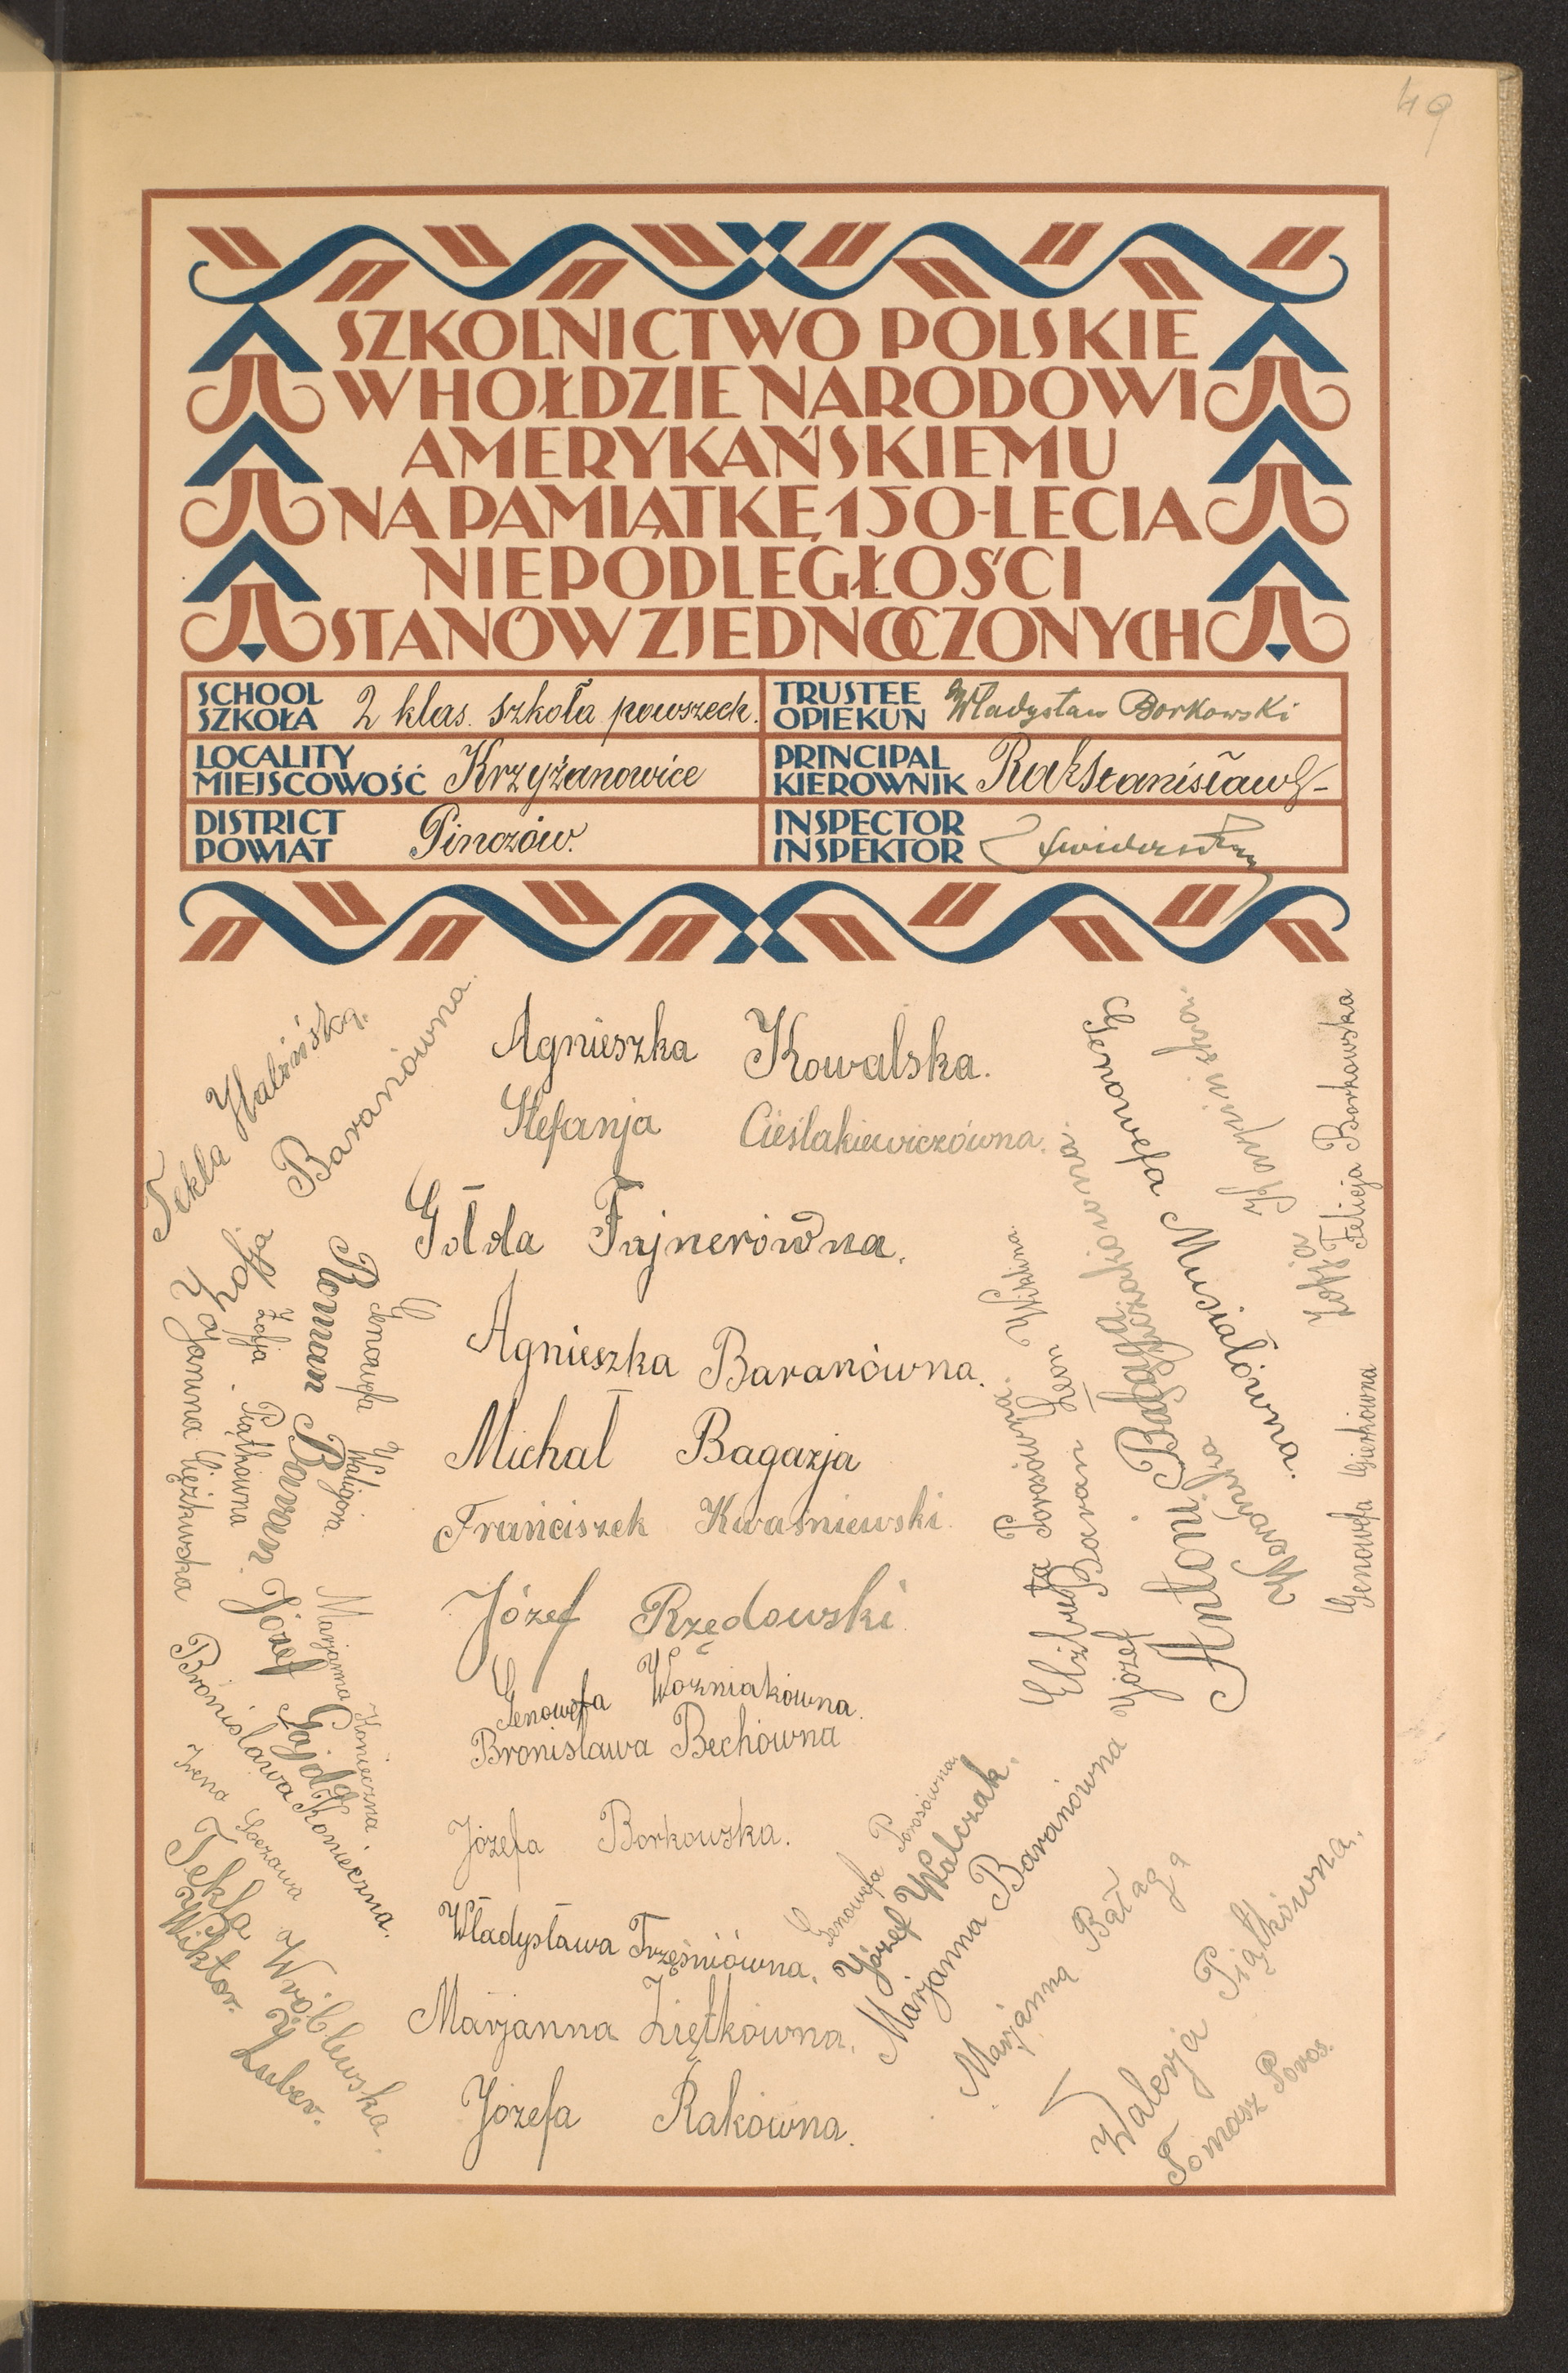 49
SZKOLNICTWO POLSKIE
W HOŁDZIE NARODOWI
AMERYKAŃSKIEMU
NA PAMIĄTKĘ 150-LECIA
NIEPODLEGŁOŚCI
STANÓW ZJEDNOCZONYCH
SCHOOL
SZKOŁA 2 klas. szkoła powszech.
TRUSTEE
OPIEKUN Władysław Borkowski
LOCALITY
MIEJSCOWOŚĆ Krzyżanowice
PRINCIPAL
KIEROWNIK Rak Stanisław
DISTRICT
POWIAT Pinczów.
INSPECTOR
INSPEKTOR
Agnieszka Kowalska.
Stefanja Cieślakiewiczówna.
Gołda Fajnerówna.
Agnieszka Baranówna.
Michał Bagazja
Franciszek Kwaśniewski
Józef Rzędowski
Genowefa Woźniakówna.
Bronisława Bechówna
Józefa Borkowska.
Władysława Trześniówna.
Marjanna Ziętkówna.
Józefa Rakówna.
Tekla Halińska.
Zofja Baranówna.
Janina Ciężkowska
Zofja Piątkówna
Roman Baran.
Genowefa Waligóra.
Józef Gajda
Marjanna Konieczna.
Bronisława Konieczna.
Irena
Tekla Wróblewska.
Wiktor Zuber.
Genowefa Porosówna
Józef Walczak.
Marjanna Baranówna
Marjanna Bałaga
Walerja Piątkówna.
Tomasz Poros.
Elżbieta Porosówna.
Józef Baran
Jan
Wiktorja
Antoni Bagazja
Weronika
Genowefa Musiałówna.
Zofja
Felicja Borkowska
Genowefa Cierkówna